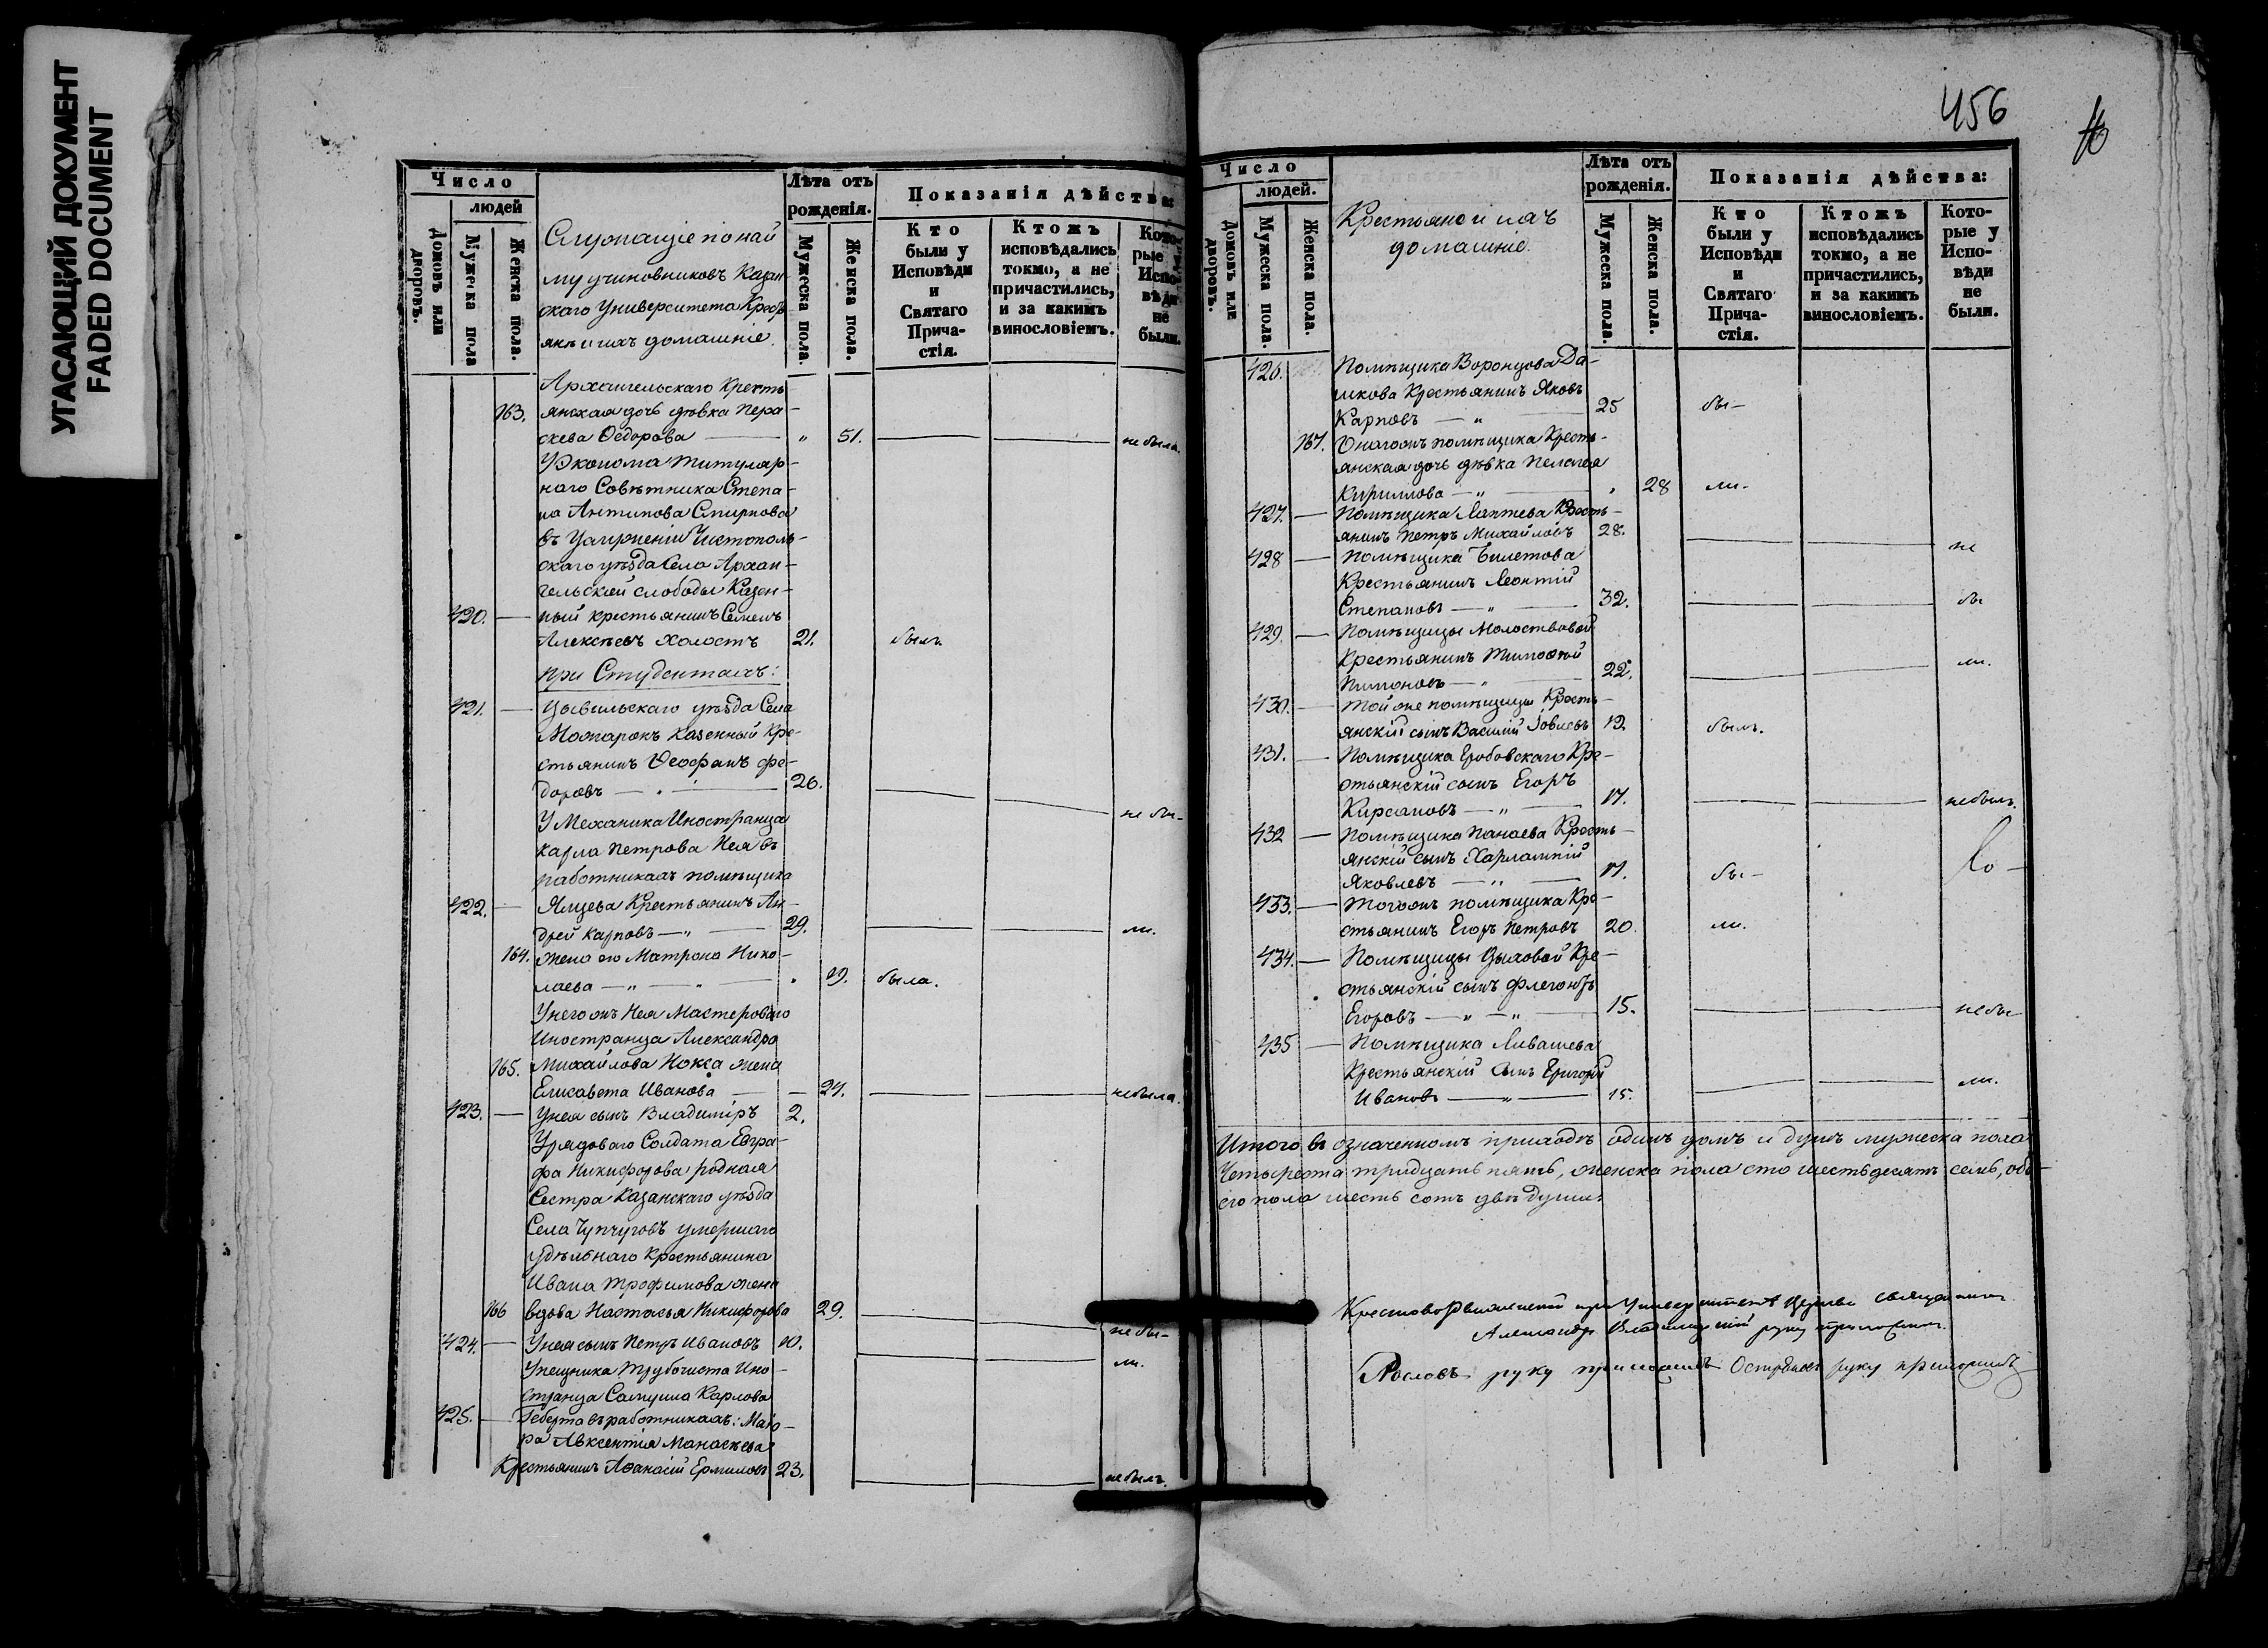 УГАСАЮЩИЙ ДОКУМЕНТ
FADED DOCUMENT
Число
людей
Домовъ или дворовъ.
Мужеска пола
Женска пола.
Служащіе по най
му у чиновниковъ Казан
скаго Университета Кресть
яне и ихъ домашніе.
Лѣта отъ рожденія.
Мужеска пола.
Женска пола.
Показанія дѣйства:
Кто были у Исповѣди и Святаго Прича- стія.
Ктожъ исповѣдались токмо, а не причастились, и за какимъ винословіемъ.
Кото- рые у Испо- вѣди не были.
Архангельскаго Кресть
163. янская дочь дѣвка Пера-
скева Ѳедорова — „ 51. не была.
У Эконома Титуляр-
наго Совѣтника Степа-
на Антипова Смирнова
въ Услуженіи Чистополь-
скаго уѣзда Села Архан-
гельской слободы Казен-
420. — ный крестьянинъ Семенъ
Алексѣевъ холостъ 21. былъ
При Студентахъ:
421. — Цывильскаго уѣзда Села
Можарокъ Казенный Кре-
стьянинъ Ѳеофанъ Фе-
доровъ — 26. не бы-
У Механика Иностранца
Карла Петрова Нея въ
работникахъ помѣщика
422. — Ямцева Крестьянинъ Ан-
дрей Карповъ — „ — 29. ли.
164. жена его Матрона Нико-
лаева — „ — „ 29. была.
У него жъ Нея Мастероваго
Иностранца Александра
165. Михайлова Нокса жена
Елисавета Иванова — 24. не была.
423. — У нея сынъ Владиміръ 2.
У рядоваго Солдата Евгра-
фа Никифорова родная
Сестра Казанскаго уѣзда
Села Чупчуговъ умершаго
удѣльнаго Крестьянина
Ивана Трофимова жена
166 вдова Настасья Никифорова 29. не бы-
424. — У нея сынъ Петръ Ивановъ 10. ли.
У печника Трубочиста Ино-
странца Самуила Карлова
425. — Геберта въ работникахъ: Маіо-
ра Авксентія Манасеина
Крестьянинъ Аѳанасій Ермиловъ 23. не былъ.
456
Число
людей.
Домовъ или дворовъ.
Мужеска пола.
Женска пола.
Крестьяно и ихъ
домашніе.
Лѣта отъ рожденія.
Мужеска пола.
Женска пола.
Показанія дѣйства:
Кто были у Исповѣди и Святаго Прича- стія.
Ктожъ исповѣдались токмо, а не причастились, и за какимъ винословіемъ.
Кото- рые у Испо- вѣди не были.
426. Помѣщика Воронцова Да-
шкова Крестьянинъ Яковъ
Карповъ — „ 25 бы-
167. Онагожъ помѣщика Кресть-
янская дочь дѣвка Пелагея
Кириллова — „ — „ 28 ли.
427. — Помѣщика Лаптева Кресть-
янинъ Петръ Михайловъ 28. не
428 — Помѣщика Билетова
Крестьянинъ Леонтій
Степановъ — „ — 32. бы
429. — Помѣщицы Молоствовой
Крестьянинъ Тимоѳей
Пимоновъ — „ — 22. ли.
430. — Той же помѣщицы Кресть-
янскій сынъ Василій Іовлевъ 19. былъ.
431. — Помѣщика Гробовскаго Кре-
стьянскій сынъ Егоръ
Кирсановъ — „ — 17. не былъ.
432 — Помѣщика Панаева Кресть-
янскій сынъ Харлампій
Яковлевъ — „ — 17. бы-
433. — Тогожъ помѣщика Кре-
стьянинъ Егоръ Петровъ 20. ли.
434. — Помѣщицы Дыховой Кре-
стьянскій сынъ Флегонтъ
Егоровъ — „ — „ — 15. не бы-
435 — Помѣщика Ливашева
Крестьянскій Сынъ Григорій
Ивановъ — „ — 15. ли.
Итого въ означенномъ приходѣ одинъ домъ и душъ мужеска пола
Четыреста тридцать пять, женска пола сто шестьдесятъ семь, обо-
его пола шесть сотъ двѣ души.
Крестовоздвиженской при Университетѣ Церкви священникъ
Александръ Владимирскій руку приложилъ.
руку приложилъ руку приложилъ